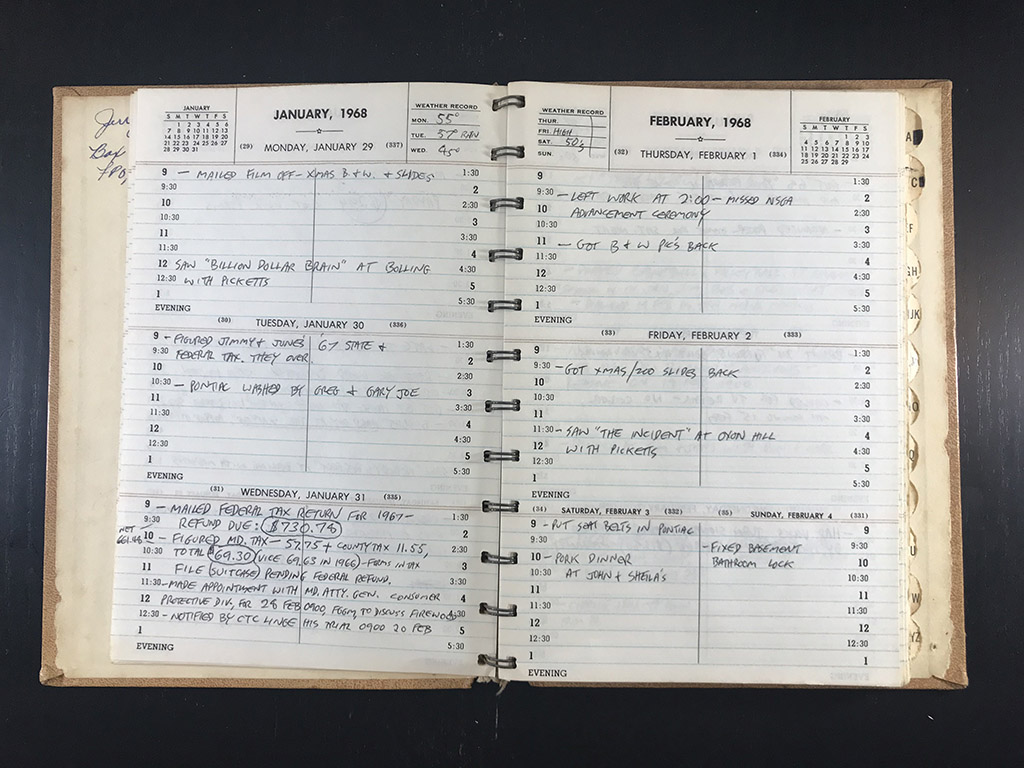 Jerr
Box
JANUARY
S M T W T F S
1 2 3 4 5 6
7 8 9 10 11 12 13
14 15 16 17 18 19 20
21 22 23 24 25 26 27
28 29 30 31
JANUARY, 1968
(29) MONDAY, JANUARY 29 (337)
WEATHER RECORD
MON. 55°
TUE. 57° RAIN
WED. 45°
9 — MAILED FILM OFF – XMAS B & W. & SLIDES 1:30
9:30 2
10 2:30
10:30 3
11 3:30
11:30 4
12 SAW "BILLION DOLLAR BRAIN" AT BOLLING 4:30
12:30 WITH PICKETTS 5
1 5:30
EVENING
(30) TUESDAY, JANUARY 30 (336)
9 – FIGURED JIMMY & JUNE'S '67 STATE & 1:30
9:30 FEDERAL TAX. THEY OVER. 2
10 2:30
10:30 – PONTIAC WASHED BY GREG & GARY JOE 3
11 3:30
11:30 4
12 4:30
12:30 5
1 5:30
EVENING
(31) WEDNESDAY, JANUARY 31 (335)
9 – MAILED FEDERAL TAX RETURN FOR 1967 – 1:30
9:30 REFUND DUE: $730.78 2
NET
661.48
10 – FIGURED MD. TAX – 57.75 + COUNTY TAX 11.55, 2:30
10:30 TOTAL $69.30 (VICE 69.63 IN 1966) – FORMS IN TAX 3
11 FILE (SUITCASE) PENDING FEDERAL REFUND. 3:30
11:30 – MADE APPOINTMENT WITH MD. ATTY. GEN. CONSUMER 4
12 PROTECTIVE DIV, FOR 28 FEB 0900, FGGM, TO DISCUSS FIREWOOD 4:30
12:30 – NOTIFIED BY CTC LINGE HIS TRIAL 0900 20 FEB 5
1 5:30
EVENING
WEATHER RECORD
THUR.
FRI. HIGH
SAT. 50's
SUN.
FEBRUARY, 1968
(32) THURSDAY, FEBRUARY 1 (334)
FEBRUARY
S M T W T F S
1 2 3
4 5 6 7 8 9 10
11 12 13 14 15 16 17
18 19 20 21 22 23 24
25 26 27 28 29
9 1:30
9:30 – LEFT WORK AT 2:00 – MISSED NSGA 2
10 ADVANCEMENT CEREMONY 2:30
10:30 3
11 – GOT B & W PIC'S BACK 3:30
11:30 4
12 4:30
12:30 5
1 5:30
EVENING
(33) FRIDAY, FEBRUARY 2 (333)
9 1:30
9:30 – GOT XMAS/ZOO SLIDES BACK 2
10 2:30
10:30 3
11 3:30
11:30 – SAW "THE INCIDENT" AT OXON HILL 4
12 WITH PICKETTS 4:30
12:30 5
1 5:30
EVENING
(34) SATURDAY, FEBRUARY 3 (332)
9 – PUT SEAT BELTS IN PONTIAC
9:30
10 – PORK DINNER
10:30 AT JOHN & SHEILA'S
11
11:30
12
12:30
1
EVENING
(35) SUNDAY, FEBRUARY 4 (331)
9
– FIXED BASEMENT 9:30
BATHROOM LOCK 10
10:30
11
11:30
12
12:30
1
A
C
EF
GH
IJK
U
W
YZ